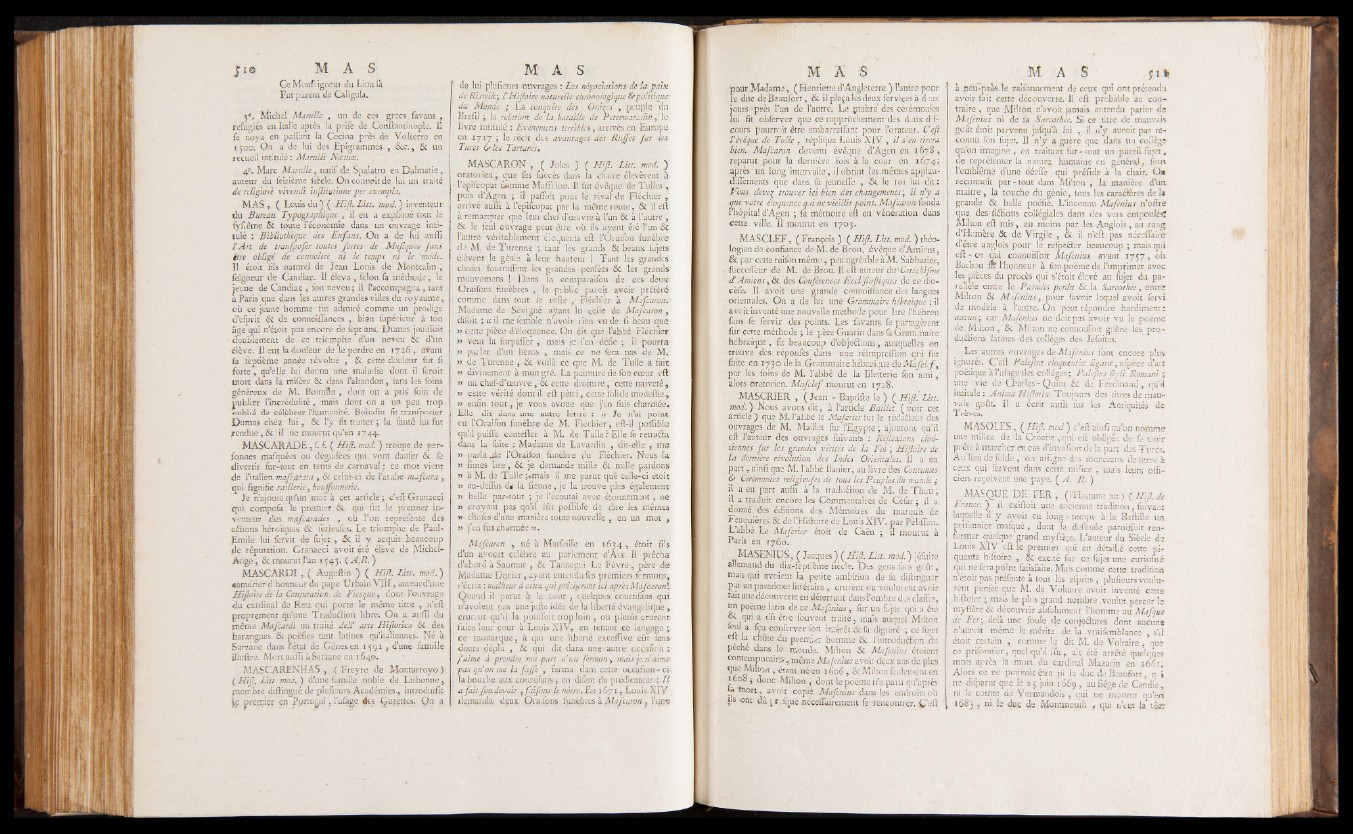 510 M A S
Ce Monseigneur du Lion là
Fut parent de Caligula.
3°. Michel Marulle, un de ces grecs savans,
refugiés en Italie après la prise de Constantinople. Il
se noya en passant la Cecina près de Volterre en
1500. On a de lui des Epigrammes, &c., & un
recueil intitulé: Marulli Næniæ.
4°. Marc Marulle, natif de Spalatro en Dalmatie,
auteur du seizième siècle. On connoît de lui un traité
de religiosè vivendi institutione per exempla.
MAS, ( Louis du ) ( Hist. Litt. mod. ) inventeur
du Bureau Typographique, il en a expliqué tout le
systême & toute l'économie dans un ouvrage inti-
tulé : Bibliothèque des Enfans. On a de lui aussi
l'Art de transposer toutes sortes de Musiques sans
être obligé de connoître ni le temps ni le mode.
Il étoit fils naturel de Jean Louis de Montcalm,
seigneur de Candiac. Il éleva, selon sa méthode, le
jeune de Candiac, son neveu; il l'accompagna, tant
à Paris que dans les autres grandes villes du royaume,
où ce jeune homme fut admiré comme un prodige
d'esprit & de connoissances, bien supérieur à son
âge qui n'étoit pas encore de sept ans. Dumas jouissoit
doublement de ce triomphe d'un neveu & d'un
élève. Il eut la douleur de le perdre en 1726, avant
sa septième année révolue, & cette douleur fut si
forte, qu'elle lui donna une maladie dont il seroit
mort dans la misère & dans l'abandon, sans les soins
généreux de M. Boindin, dont on a pris soin de
publier l'incrédulité, mais dont on a un peu trop
oublié de célébrer l'humanité. Boindin fit transporter
Dumas chez lui, & l'y fit traiter; la santé lui fut
rendue, & il ne mourut qu'en 1744.
MASCARADE, s. f. ( Hist. mod. ) troupe de per-
sonnes masquées ou déguisées qui vont danser & se
divertir sur-tout en tems de carnaval; ce mot vient
de l'italien mascarata, & celui-ci de l'arabe mascara,
qui signifie raillerie, bouffonnerie.
Je n'ajoute qu'un mot à cet article; c'est Granacci
qui composa le premier & qui fut le premier in-
venteur des mascarades, où l'on représente des
actions héroïques & sérieuses. Le triomphe de Paul-
Emile lui servit de sujet, & il y acquit beaucoup
de réputation. Granacci avoit été élève de Michel-
Ange, & mourut l'an 1543. (A.R.)
MASCARDI, ( Augustin ) ( Hist. Litt. mod. )
camérier d'honneur du pape Urbain VIII, auteur d'une
Histoire de la Conjuration de Fiesque, dont l'ouvrage
du cardinal de Retz qui porte le même titre, n'est
proprement qu'une Traduction libre. On a aussi du
même Mascardi un traité dell' arte Historica & des
harangues & poësies tant latines qu'italiennes. Né à
Sarzane dans l'état de Gênes en 1591, d'une famille
illustre. Mort aussi à Sarzane en 1640.
MASCARENHAS, ( Freyre de Montarroyo )
( Hist. Litt. mod. ) d'une famille noble de Lisbonne,
membre distingué de plusieurs Académies, introduisit
le premier en Portugal, l'usage des Gazettes. On a
M A S
de lui plusieurs ouvrages : Les négociations de la paix
de Riswick; l'Histoire naturelle chronologique & politique
du Monde ; La conquête des Oniçes, peuple du
Bresil ; la relation de la bataille de Peterwaradin, le
livre intitulé : Evènemens terribles, arrivés en Europe
en 1717 ; le récit des avantages des Russes sur les
Turcs & les Tartares.
MASCARON, ( Jules ) ( Hist. Litt. mod. )
oratorien, que ses succès dans la chaire élevèrent à
l'episcopat comme Massillon. Il fut évêque de Tulles,
puis d'Agen ; il passoit pour le rival de Fléchier,
arrivé aussi à l'épiscopat par la même route, & il est
à remarquer que leur chef d'œuvre à l'un & à l'autre,
& le seul ouvrage peut-être où ils ayent été l'un &
l'autre véritablement éloquents est l'Oraison funèbre
de M. de Turenne ; tant les grands & beaux sujets
élèvent le génie à leur hauteur ! Tant les grandes
choses fournissent les grandes pensées & les grands
mouvemens ! Dans la comparaison de ces deux
Oraisons funèbres, le public paroît avoir préféré
comme dans tout le reste, Fléchier à Mascaron.
Madame de Sévigné ayant lu celle de Mascaron,
disoit : « il me semble n'avoir rien vu de si beau que
» cette pièce d'éloquence. On dit que l'abbé Flechier
» veut la surpasser, mais je l'en défie ; il pourra
» parler d'un héros, mais ce ne sera pas de M.
» de Turenne, & voilà ce que M. de Tulle a fait
» divinement à mon gré. La peinture de son cœur est
» un chef-d'œuvre, & cette droiture, cette naïveté,
» cette vérité dont il est pétri, cette solide modestie,
» enfin tout, je vous avoue que j'en suis charmée.
Elle dit dans une autre lettre : « Je n'ai point
eu l'Oraison funèbre de M. Flechier, est-il possible
qu'il puisse contester à M. de Tulle ? Elle se retracta
dans la suite : Madame de Lavardin, dit-elle, me
» parla de l'Oraison funèbre du Fléchier. Nous la
» fimes lire, & je demande mille & mille pardons
» à M. de Tulle ; mais il me parut que celle-ci étoit
» au-dessus de la sienne, je la trouve plus également
» belle par-tout ; je l'écoutai avec étonnement, ne
» croyant pas qu'il fût possible de dire les mêmes
» choses d'une manière toute nouvelle, en un mot,
» j'en fus charmée ».
Mascaron, né à Marseille en 1634, étoit fils
d'un avocat célèbre au parlement d'Aix. Il prêcha
d'abord à Saumur, & Tannegui Le Fèvre, père de
Madame Dacier, ayant entendu ses premiers sermons,
s'écria : malheur à ceux qui prêcheront ici après Mascaron!
Quand il parut à la cour, quelques courtisans qui
n'avoient pas une juste idée de la liberté évangélique,
crurent qu'il la poussoit trop loin, ou plutôt crurent
faire leur cour à Louis XIV, en tenant ce langage ;
ce monarque, à qui une liberté excessive eût sans
doute déplu, & qui dit dans une autre occasion :
j'aime à prendre ma part d'un sermon, mais je n'aime
pas qu'on me la fasse, ferma dans cette occasion-ci
la bouche aux courtisans, en disant du prédicateur : Il
a fait son devoir, faisons le nôtre. En 1671, Louis XIV
demanda deux Oraisons funèbres à Mascaron, l'une
M A S
pour Madame, ( Henriette d'Angleterre ) l'autre pour
le duc de Beaufort, & il plaça les deux services à deux
jours près l'un de l'autre. Le maître des cérémonies
lui fit observer que ce rapprochement des deux dis-
cours pourroit être embarrassant pour l'orateur. C'est
l'évêque de Tulle, répliqua Louis XIV, il s'en tirera
bien. Mascaron devenu évêque d'Agen en 1678,
reparut pour la dernière fois à la cour en 1694;
après un long intervalle, il obtint les mêmes applau-
dissements que dans sa jeunesse, & le roi lui dit:
Vous devez trouver ici bien des changements; il n'y a
que votre éloquence qui ne vieillit point. Mascaron fonda
l'hôpital d'Agen ; sa mémoire est en vénération dans
cette ville. Il mourut en 1703.
MASCLEF, ( François ) ( Hist. Litt. mod. ) théo-
logien de confiance de M. de Brou, évêque d'Amiens,
& par cette raison même, peu agréable à M. Sabbatier,
successeur de M. de Brou. Il est auteur du Catéchisme
d'Amiens, & des Conférences Ecclésiastiques de ce dio-
cèse. Il avoit une grande connoissance des langues
orientales. On a de lui une Grammaire hébraïque ; il
avoit inventé une nouvelle méthode pour lire l'hébreu
sans se servir des points. Les savants se partagèrent
sur cette méthode ; le père Guarin dans sa Grammaire
hébraïque, fit beaucoup d'objections, auxquelles on
trouve des réponses dans une réimpression qui fut
faite en 1730 de la Grammaire hébraïque de Masclef,
par les soins de M. l'abbé de la Bletterie son ami,
alors oratorien. Masclef mourut en 1728.
MASCRIER, ( Jean - Baptiste le ) ( Hist. Litt.
mod. ) Nous avons dit, à l'article Maillet ( voir cet
article ) que M. l'abbé le Mascrier fut le rédacteur des
ouvrages de M. Maillet sur l'Egypte ; ajoutons qu'il
est l'auteur des ouvrages suivants : Réflexions chré-
tiennes sur les grandes vérités de la Foi ; Histoire de
la dernière révolution des Indes Orientales. Il a eu
part, ainsi que M. l'abbé Banier, au livre des Coutumes
& Cérémonies religieuses de tous les Peuples du monde ;
il a eu part aussi à la traduction de M. de Thou;
il a traduit encore les Commentaires de César; il a
donné des éditions des Mémoires du marquis de
Feuquières & de l'Histoire de Louis XIV. par Pélisson.
L'abbé Le Mascrier étoit de Caën ; il mourut à
Paris en 1760.
MASENIUS, ( Jacques ) ( Hist. Litt. mod. ) jésuite
allemand du dix-septième siècle. Des gens sans goût,
mais qui avoient la petite ambition de se distinguer
par un paradoxe littéraire, crurent ou voulurent avoir
fait une découverte en déterrant dans l'ombre des classes,
un poëme latin de ce Masenius, sur un sujet qui a été
& qui a dû être souvent traité, mais auquel Milton
seul a sçu conserver son intérêt & sa dignité ; ce sujet
est la chûte du premier homme & l'introduction du
péché dans le monde. Milton & Masenius étoient
contemporains, même Masenius avoit deux ans de plus
que Milton, étant né en 1606, & Milton seulement en
1608 ; donc Milton, dont le poëme n'a paru qu'après
sa mort, avoit copié Masenius dans les endroits où
ils ont dû presque nécessairement se rencontrer. C'est
M A S 511
à peu-près le raisonnement de ceux qui ont prétendu
avoir fait cette découverte. Il est probable au con-
traire, que Milton n'avoit jamais entendu parler de
Masenius ni de sa Sarcothée. Si ce titre de mauvais
goût étoit parvenu jusqu'à lui, il n'y auroit pas re-
connu son sujet. Il n'y a guère que dans un collège
qu'on imagine, en traitant sur-tout un pareil sujet,
de représenter la nature humaine en général, sous
l'emblême d'une déesse qui préside à la chair. On
reconnoît par - tout dans Milton, la manière d'un
maître, la touche du génie, tous les caractères de la
grande & belle poësie. L'inconnu Masenius n'offre
que des fictions collégiales dans des vers empoulés;
Milton est mis, au moins par les Anglois, au rang
d'Homère & de Virgile, & il n'est pas nécessaire
d'être anglois pour le respecter beaucoup ; mais qui
est - ce qui connoissoit Masenius avant 1757, où
Barbou fit l'honneur à son poëme de l'imprimer avec
les pièces du procès qui s'étoit élevé au sujet du pa-
rallèle entre le Paradis perdu & la Sarcothée, entre
Milton & Masenius, pour savoir lequel avoit servi
de modèle à l'autre. On peut répondre hardiment :
aucun; car Masenius ne doit pas avoir vu le poëme
de Milton, & Milton ne connoissoit guère les pro-
ductions latines des collèges des Jésuites.
Les autres ouvrages de Masenius sont encore plus
ignorés. C'est Palæstra eloquentiæ ligatæ, espèce d'art
poëtique à l'usage des collèges; Palæstra styli Romani ;
une vie de Charles - Quint & de Ferdinand, qu'il
intitule: Anima Historiæ. Toujours des titres de mau-
vais goût. Il a écrit aussi sur les Antiquités de
Trèves.
MASOLES, ( Hist. mod ) c'est ainsi qu'on nomme
une milice de la Croatie, qui est obligée de se tenir
prête à marcher en cas d'invasion de la part des Turcs.
Au lieu de solde, on assigne des morceaux de terre à
ceux qui servent dans cette milice, mais leurs offi-
ciers reçoivent une paye. ( A. R. )
MASQUE DE FER, ( l'Homme au ) ( Hist. de
France. ) il existoit une ancienne tradition, suivant
laquelle il y avoit eu long - temps à la Bastille un
prisonnier masqué, dont la destinée paroissoit ren-
fermer quelque grand mystère. L'auteur du Siècle de
Louis XIV est le premier qui ait détaillé cette pi-
quante histoire, & excité sur ce sujet une curiosité
qui ne sera point satisfaite. Mais comme cette tradition
n'étoit pas présente à tous les esprits, plusieurs voulu-
rent penser que M. de Voltaire avoit inventé cette
histoire ; mais le plus grand nombre voulut percer le
mystère & découvrir absolument l'homme au Masque
de Fer; delà une foule de conjectures dont aucune
n'auroit même le mérite de la vraisemblance, s'il
étoit certain, comme le dit M. de Voltaire, que
ce prisonnier, quel qu'il fût, ait été arrêté quelques
mois après la mort du cardinal Mazarin en 1661.
Alors ce ne pouvoit être ni le duc de Beaufort, qui
ne disparut que le 25 juin 1669, au siège de Candie,
ni le comte de Vermandois, qui ne mourut qu'en
1683, ni le duc de Montmouth, qui n'eut la tête